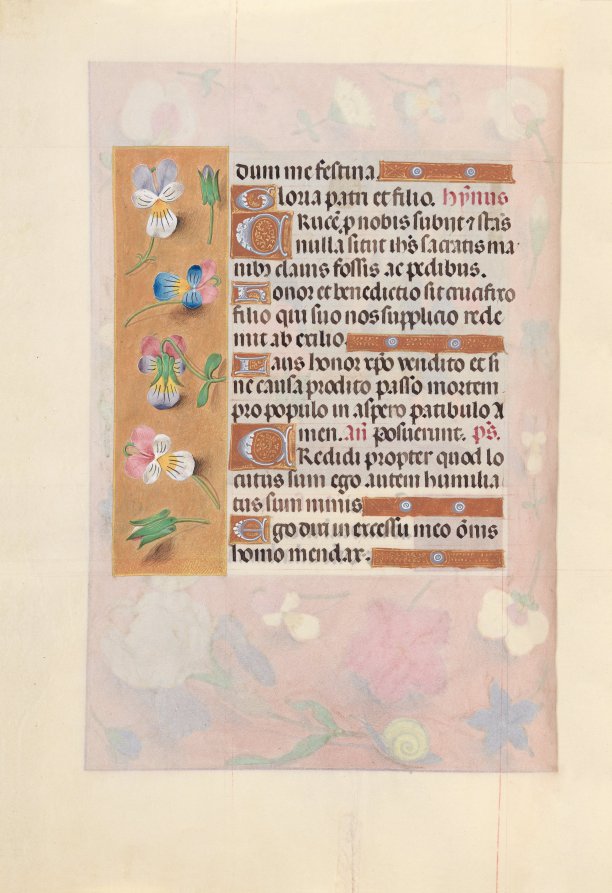 dum me festina.
Gloria patri et filio. Hymnus
Qui ce p nobis subiit & stās
nulla sicut ihs sacratis ma
nibꝫ clavis fossis ac pedibus.
Honor et benedictio sit crucifixo
filio qui suo nos supplicio rede
mit ab exilio.
Laus honor xpo vendito et si
ne causa prodito passo mortem
pro populo in aspero patibulo A
men. Añ posuerunt. ps.
Credidi propter quod lo
cutus sum ego autem humilia
tus sum nimis
Ego dixi in excessu meo oīnis
homo mendax.